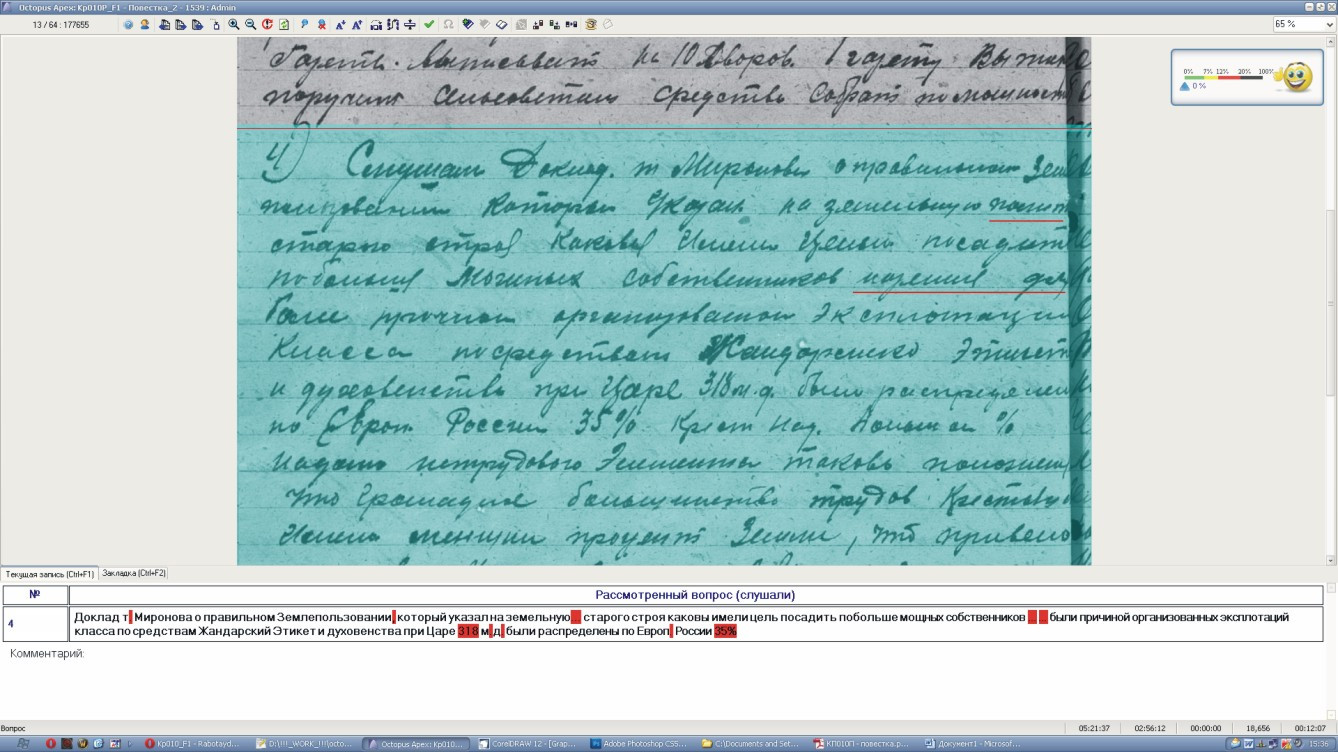 Octopus Apex: Кр010Р_F1 - Повестка_2 - 1539 : Admin
13 / 64 : 177655
65 %
0% 7% 12% 20% 100%
0 %
Газеть. Выписывать на 10 Дворов. 1 газету
поручит Сельсоветам средства собрат
4) Слушали Доклад. т Миронова о правильном Земле
пользовании который Указал на земельную
старого строя Каковы Имели Целью посадит
побольше Мощных собственников
организованой Эксплотации
Класса посредствам Жандарский Этикет
и духовенства при Царе 318 м.д. были распределены
по Европ. России 35% Крест Над.
нетрудового Элимента таково положение
что Громадное большинство трудов Крестьян
Имели меньший процент Земли, что привело
Текущая запись (Ctrl+F1) Закладка (Ctrl+F2)
№ Рассмотренный вопрос (слушали)
4 Доклад т. Миронова о правильном Землепользовании, который указал на земельную... старого строя каковы имели цель посадить побольше мощных собственников ... ... были причиной организованных эксплотаций
класса по средствам Жандарский Этикет и духовенства при Царе 318 м.д. были распределены по Европ. России 35%
Комментарий:
Вопрос
05:21:37 02:56:12 00:00:00 18,656 00:12:07
Кр010_F1 - Rabotayd... D:\!!!_WORK_!!!\octo... Octopus Apex: Кр010... CorelDRAW 12 - [Grap... Adobe Photoshop CS5... C:\Documents and Set... КП010П - повестка.р... Документ1 - Microsof... 15:36